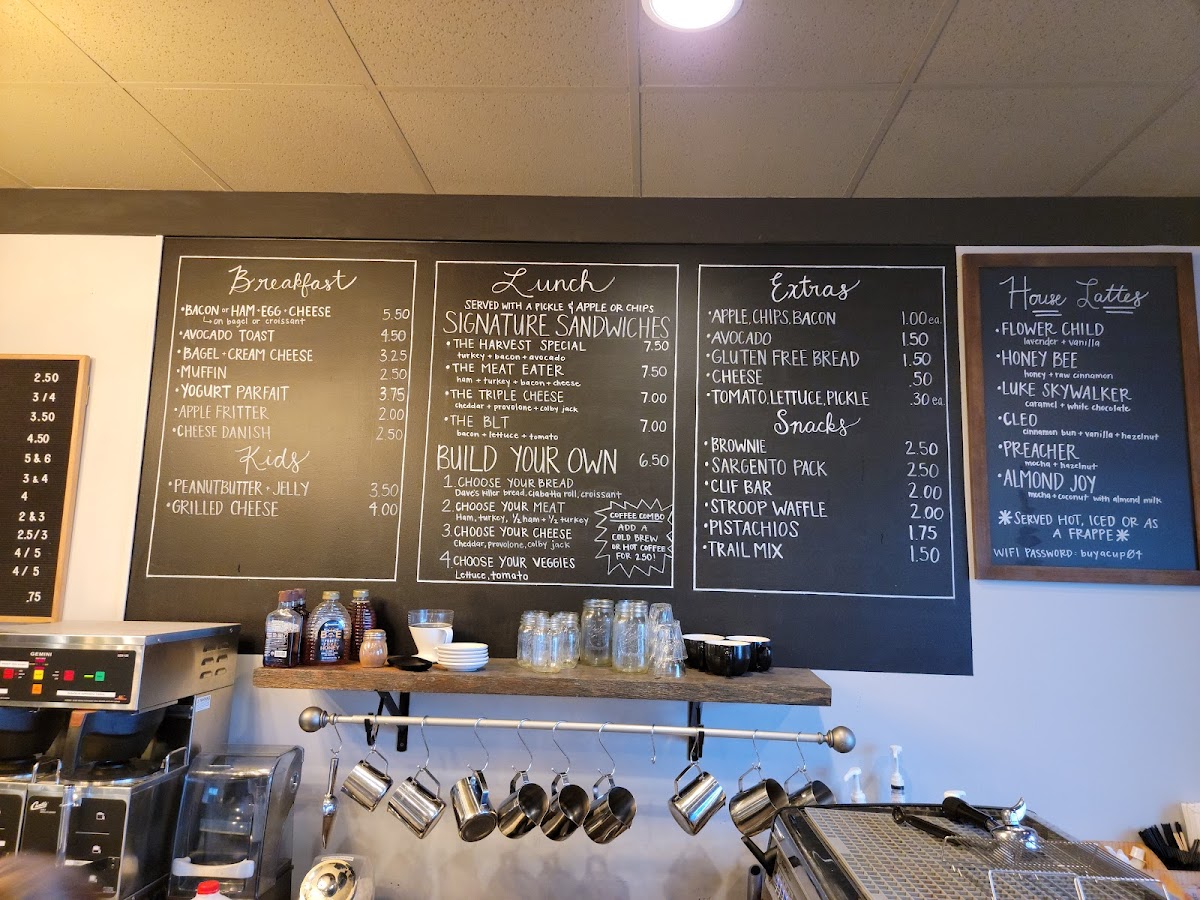 2.50
3 / 4
3.50
4.50
5 & 6
3 & 4
4
2 & 3
2.5/3
4 / 5
4 / 5
.75
Breakfast
• BACON or HAM • EGG • CHEESE 5.50
on bagel or croissant
• AVOCADO TOAST 4.50
• BAGEL • CREAM CHEESE 3.25
• MUFFIN 2.50
• YOGURT PARFAIT 3.75
• APPLE FRITTER 2.00
• CHEESE DANISH 2.50
Kids
• PEANUTBUTTER + JELLY 3.50
• GRILLED CHEESE 4.00
Lunch
SERVED WITH A PICKLE & APPLE OR CHIPS
SIGNATURE SANDWICHES
• THE HARVEST SPECIAL 7.50
turkey + bacon + avocado
• THE MEAT EATER 7.50
ham + turkey + bacon + cheese
• THE TRIPLE CHEESE 7.00
cheddar + provolone + colby jack
• THE BLT 7.00
bacon + lettuce + tomato
BUILD YOUR OWN 6.50
1. CHOOSE YOUR BREAD
Dave's Killer bread, ciabatta roll, croissant
2. CHOOSE YOUR MEAT
Ham, turkey, 1/2 ham + 1/2 turkey
3. CHOOSE YOUR CHEESE
Cheddar, provolone, colby jack
4. CHOOSE YOUR VEGGIES
Lettuce, tomato
COFFEE COMBO
ADD A
COLD BREW
OR HOT COFFEE
FOR 2.50!
Extras
• APPLE, CHIPS, BACON 1.00 ea.
• AVOCADO 1.50
• GLUTEN FREE BREAD 1.50
• CHEESE .50
• TOMATO, LETTUCE, PICKLE .30 ea.
Snacks
• BROWNIE 2.50
• SARGENTO PACK 2.50
• CLIF BAR 2.00
• STROOP WAFFLE 2.00
• PISTACHIOS 1.75
• TRAIL MIX 1.50
House Lattes
• FLOWER CHILD
lavender + vanilla
• HONEY BEE
honey + raw cinnamon
• LUKE SKYWALKER
caramel + white chocolate
• CLEO
cinnamon bun + vanilla + hazelnut
• PREACHER
mocha + hazelnut
• ALMOND JOY
mocha + coconut with almond milk
*SERVED HOT, ICED OR AS
A FRAPPE*
WIFI PASSWORD: buyacup04
GEMINI
HONEY